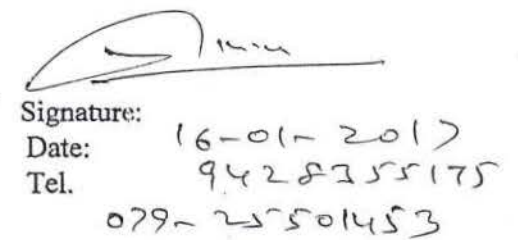 Signature:
Date: 16-01-2017
Tel. 9428355175
079-25501453